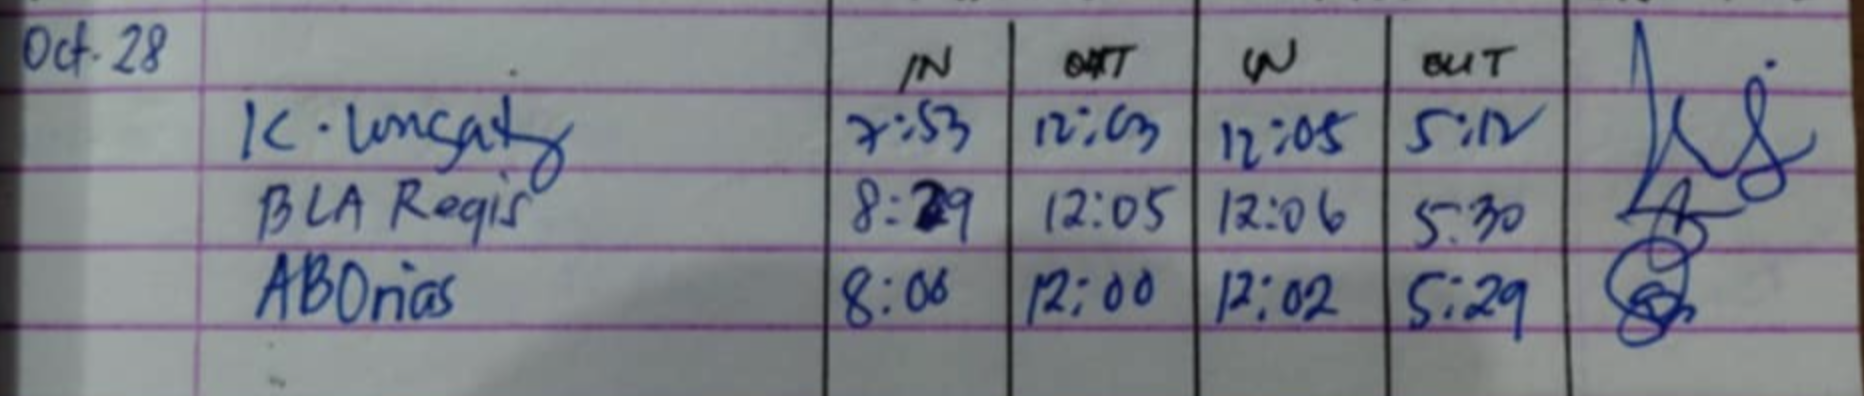 Oct. 28 IN OUT IN OUT
K. 7:53 12:03 12:05 5:12
BLA Regis 8:29 12:05 12:06 5:30
ABOrias 8:06 12:00 12:02 5:29